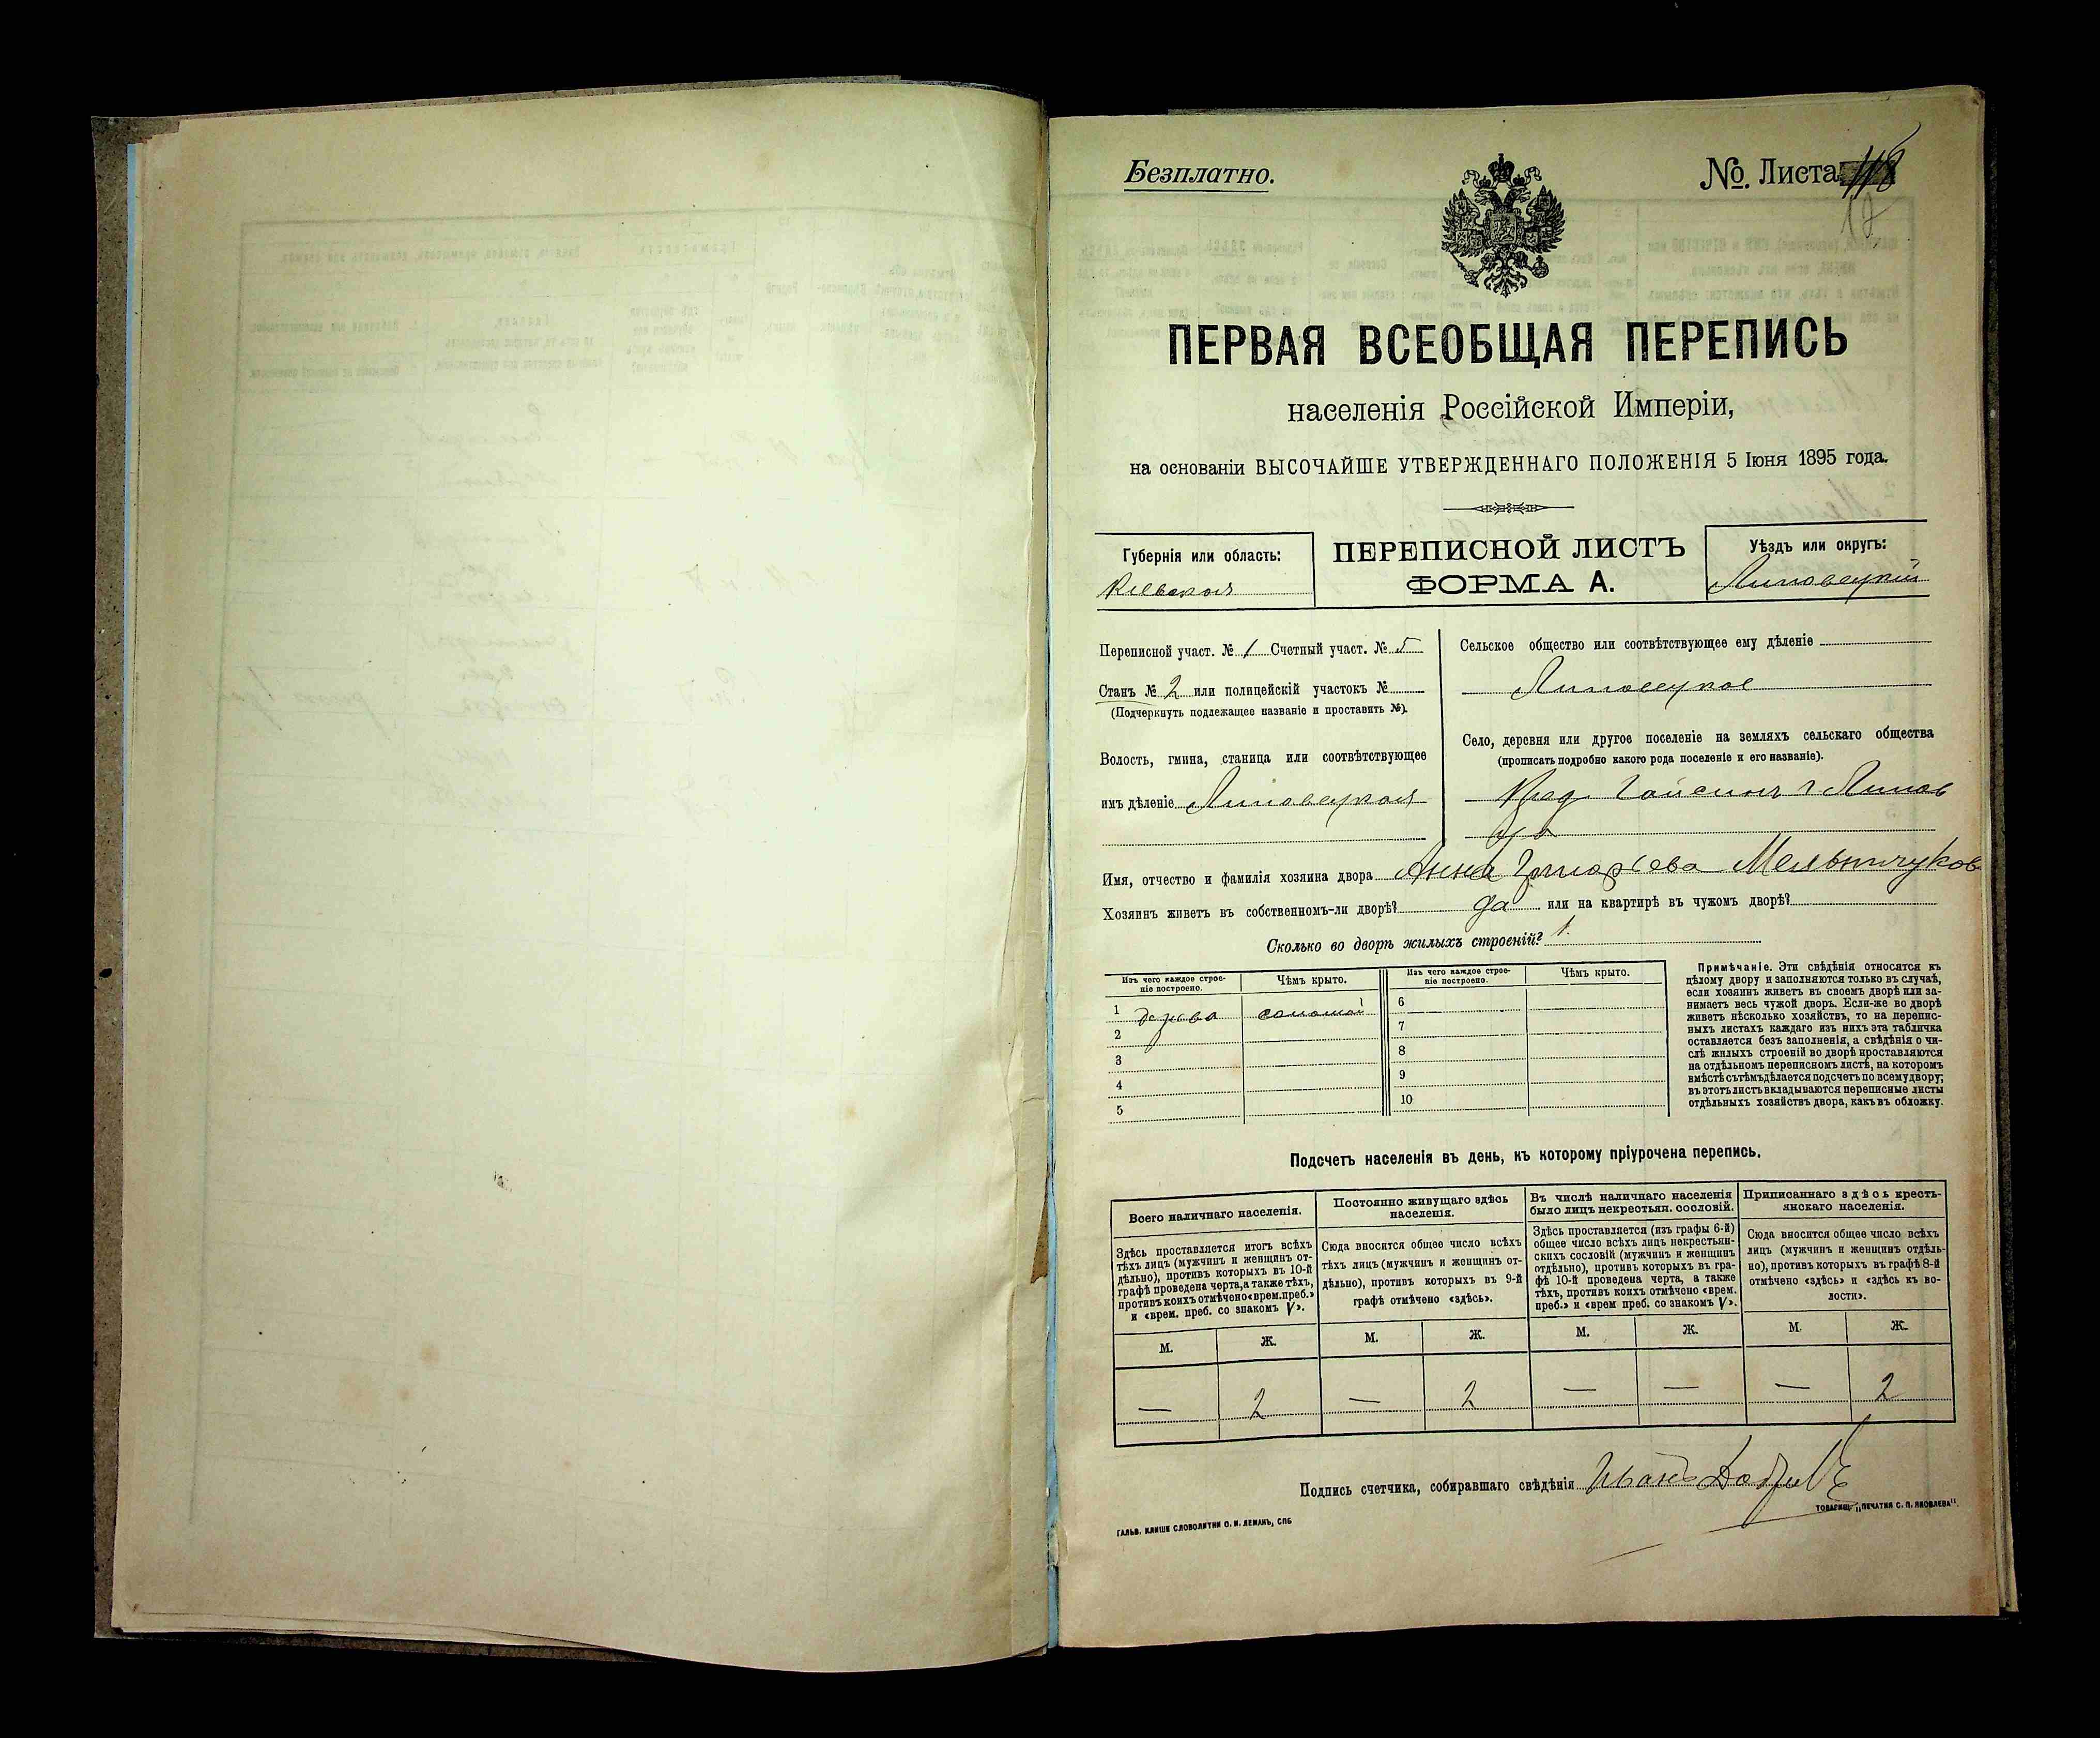 Безплатно.
№. Листа 118
ПЕРВАЯ ВСЕОБЩАЯ ПЕРЕПИСЬ
населенія Россійской Имперіи,
на основаніи ВЫСОЧАЙШЕ УТВЕРЖДЕННАГО ПОЛОЖЕНІЯ 5 Іюня 1895 года.
Губернія или область:
Кіевская
ПЕРЕПИСНОЙ ЛИСТЪ
ФОРМА А.
Уѣздъ или округъ:
Липовецкій
Переписной участ. № 1 Счетный участ. № 5
Станъ № 2 или полицейскій участокъ №
(Подчеркнуть подлежащее названіе и проставить №).
Волость, гмина, станица или соотвѣтствующее
имъ дѣленіе Липовецкая
Сельское общество или соотвѣтствующее ему дѣленіе
Липовецкое
Село, деревня или другое поселеніе на земляхъ сельскаго общества
(прописать подробно какого рода поселеніе и его названіе).
г Липов
ца
Имя, отчество и фамилія хозяина двора Анна Григорьева Мельничуков
Хозяинъ живетъ въ собственномъ-ли дворѣ? да или на квартирѣ въ чужомъ дворѣ?
Сколько во дворѣ жилыхъ строеній? 1.
Изъ чего каждое строе-
ніе построено.
Чѣмъ крыто.
Изъ чего каждое строе-
ніе построено.
Чѣмъ крыто.
1 дерева соломой 6
2 7
3 8
4 9
5 10
Примѣчаніе. Эти свѣдѣнія относятся къ
цѣлому двору и заполняются только въ случаѣ,
если хозяинъ живетъ въ своемъ дворѣ или за-
нимаетъ весь чужой дворъ. Если-же во дворѣ
живетъ нѣсколько хозяйствъ, то на перепис-
ныхъ листахъ каждаго изъ нихъ эта табличка
оставляется безъ заполненія, а свѣдѣнія о чи-
слѣ жилыхъ строеній во дворѣ проставляются
на отдѣльномъ переписномъ листѣ, на которомъ
вмѣстѣ съ тѣмъ дѣлается подсчетъ по всему двору;
въ этотъ листъ вкладываются переписные листы
отдѣльныхъ хозяйствъ двора, какъ въ обложку.
Подсчетъ населенія въ день, къ которому пріурочена перепись.
Всего наличнаго населенія.
Здѣсь проставляется итогъ всѣхъ
тѣхъ лицъ (мужчинъ и женщинъ от-
дѣльно), противъ которыхъ въ 10-й
графѣ проведена черта, а также тѣхъ,
противъ коихъ отмѣчено «врем. преб.»
и «врем. преб. со знакомъ V».
Постоянно живущаго здѣсь
населенія.
Сюда вносится общее число всѣхъ
тѣхъ лицъ (мужчинъ и женщинъ от-
дѣльно), противъ которыхъ въ 9-й
графѣ отмѣчено «здѣсь».
Въ числѣ наличнаго населенія
было лицъ некрестьян. сословій.
Здѣсь проставляется (изъ графы 6-й)
общее число всѣхъ лицъ некрестьян-
скихъ сословій (мужчинъ и женщинъ
отдѣльно), противъ которыхъ въ гра-
фѣ 10-й проведена черта, а также
тѣхъ, противъ коихъ отмѣчено «врем.
преб.» и «врем преб. со знакомъ V».
Приписаннаго здѣсь кресть-
янскаго населенія.
Сюда вносится общее число всѣхъ
лицъ (мужчинъ и женщинъ отдѣль-
но), противъ которыхъ въ графѣ 8-й
отмѣчено «здѣсь» и «здѣсь къ во-
лости».
М. Ж. М. Ж. М. Ж. М. Ж.
— 2 — 2 — — — 2
Подпись счетчика, собиравшаго свѣдѣнія Иванъ
ГАЛЬВ. КЛИШЕ СЛОВОЛИТНИ О. И. ЛЕМАНЪ, СПБ
ТОВАРИЩ. „ПЕЧАТНЯ С. П. ЯКОВЛЕВА".